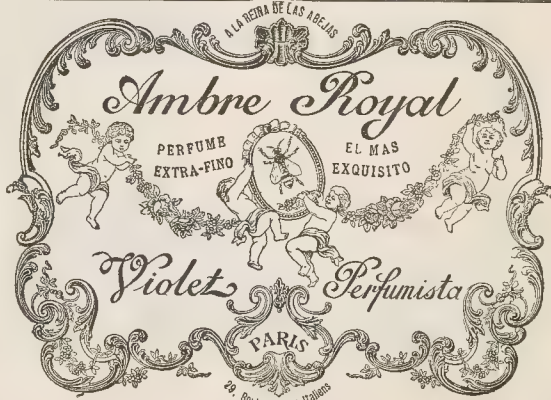 A LA REINA DE LAS ABEJAS
Ambre Royal
PERFUME
EXTRA-FINO
EL MAS
EXQUISITO
Violet Perfumista
PARIS
29, Italiens